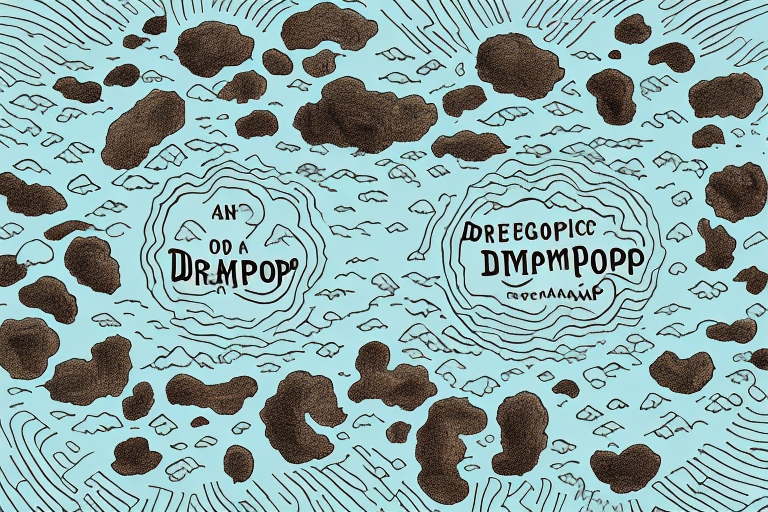 AN
OD A
DRAMPOP
DREEGOPICC
DMPMPOPP